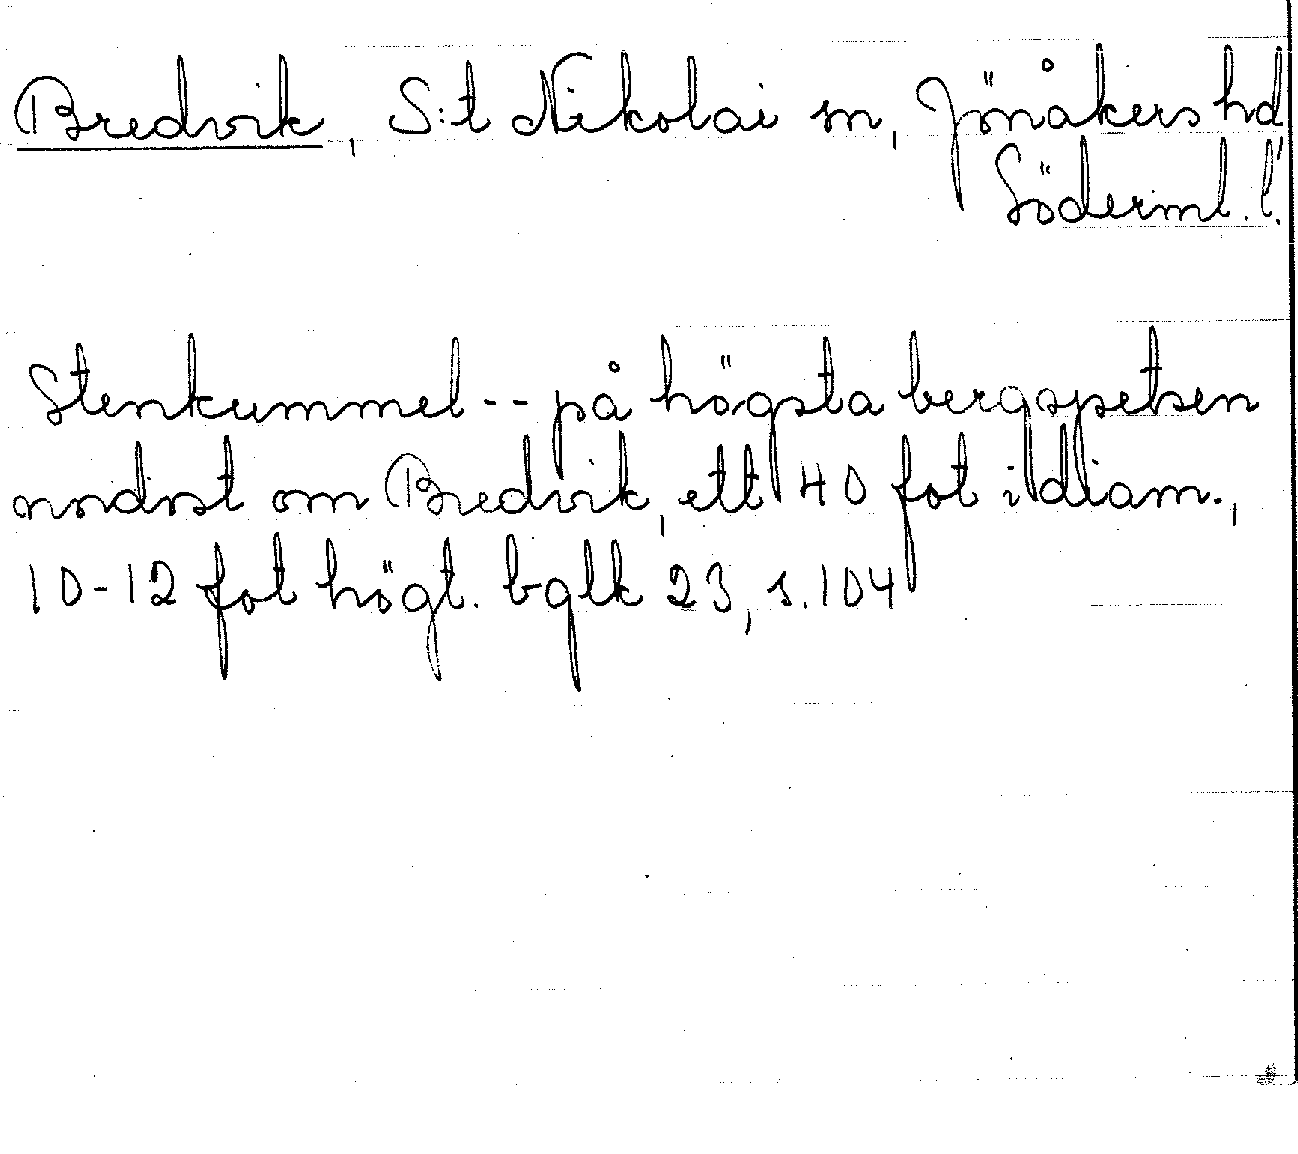 Bredvik, S:t Nikolai sn, Jönåkers hd,
Söderml. l.
Stenkummel -- på högsta bergspetsen
nordost om Bredvik, ett 40 fot i diam.,
10-12 fot högt. bglk 23, s. 104